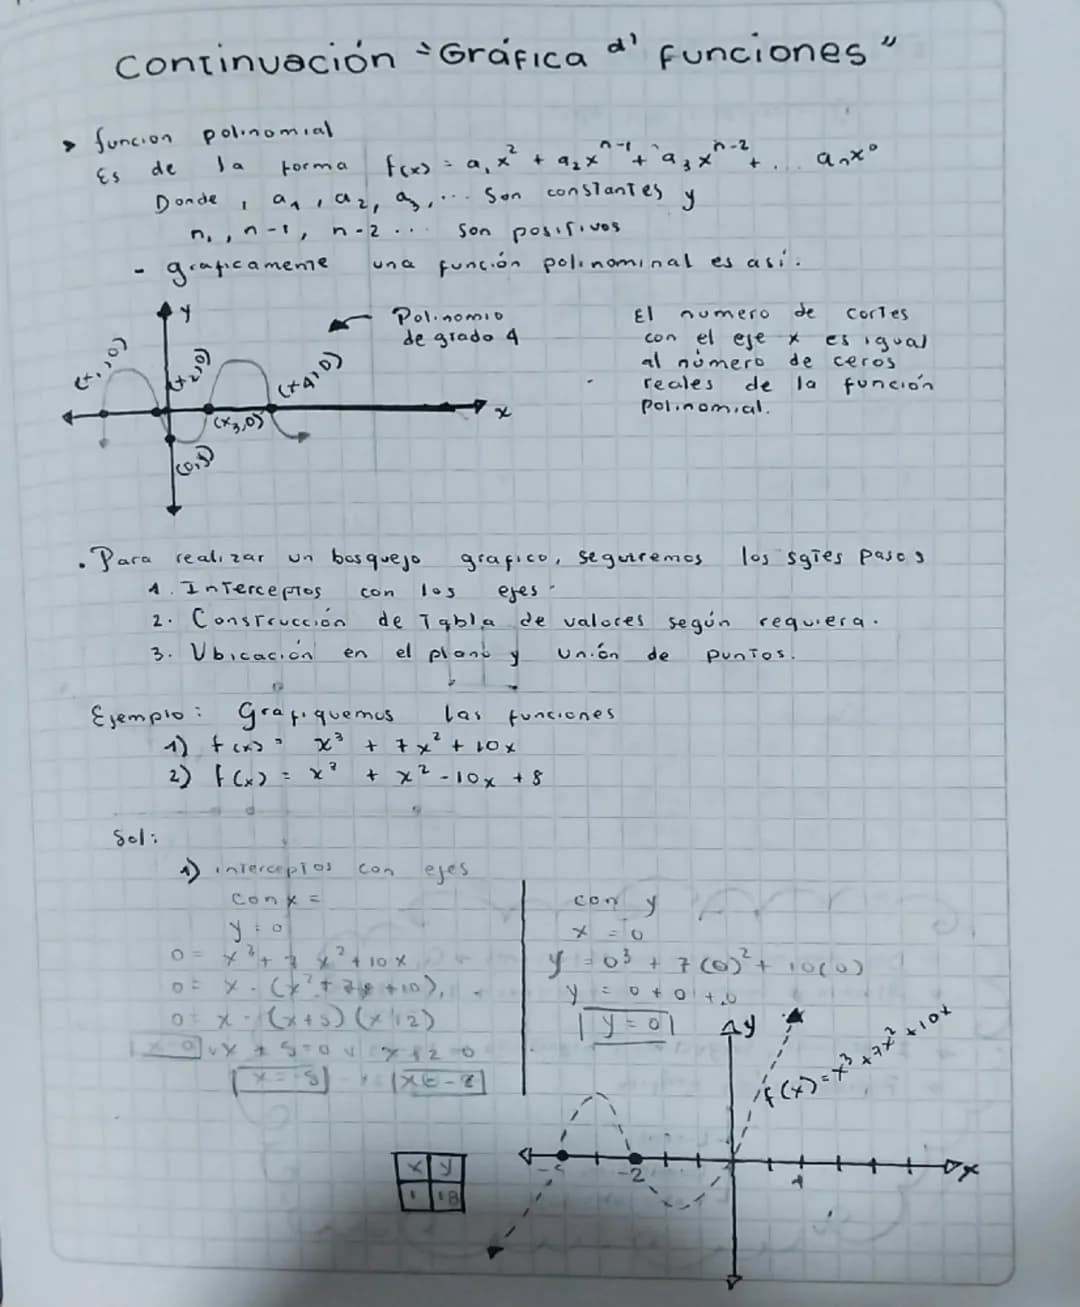 Continuación "Gráfica d' funciones"
> funcion polinomial
Es de la forma f(x) = a₁x² + a₂xⁿ⁻¹ + a₃xⁿ⁻² + ... aₙx⁰
Donde, a₁, a₂, a₃, ... Son constantes y
n, n-1, n-2 ... son positivos
- graficamente una función polinominal es así:
y
Polinomio
de grado 4
(x₁,0)
(x₂,0)
(x₃,0)
(x₄,0)
x
El numero de cortes
con el eje x es igual
al número de ceros
reales de la función
polinomial.
. Para realizar un bosquejo grafico, seguiremos los sgtes pasos
1. Interceptos con los ejes.
2. Construcción de Tabla de valores según requiera.
3. Ubicación en el plano y unión de puntos.
Ejemplo: Grafiquemos las funciones
1) f(x) = x³ + 7x² + 10x
2) f(x) = x³ + x² - 10x + 8
Sol:
1) interceptos con ejes
con x =
y = 0
0 = x³ + 7x² + 10x
0 = x · (x² + 7x + 10)
0 = x · (x+5)(x+2)
x=0 v x + 5 = 0 v x + 2 = 0
x = -5 x = -2
con y
x = 0
y = 0³ + 7(0)² + 10(0)
y = 0 + 0 + 0
y = 0
y
f(x) = x³ + 7x² + 10x
x y
1 18
-5
-2
x